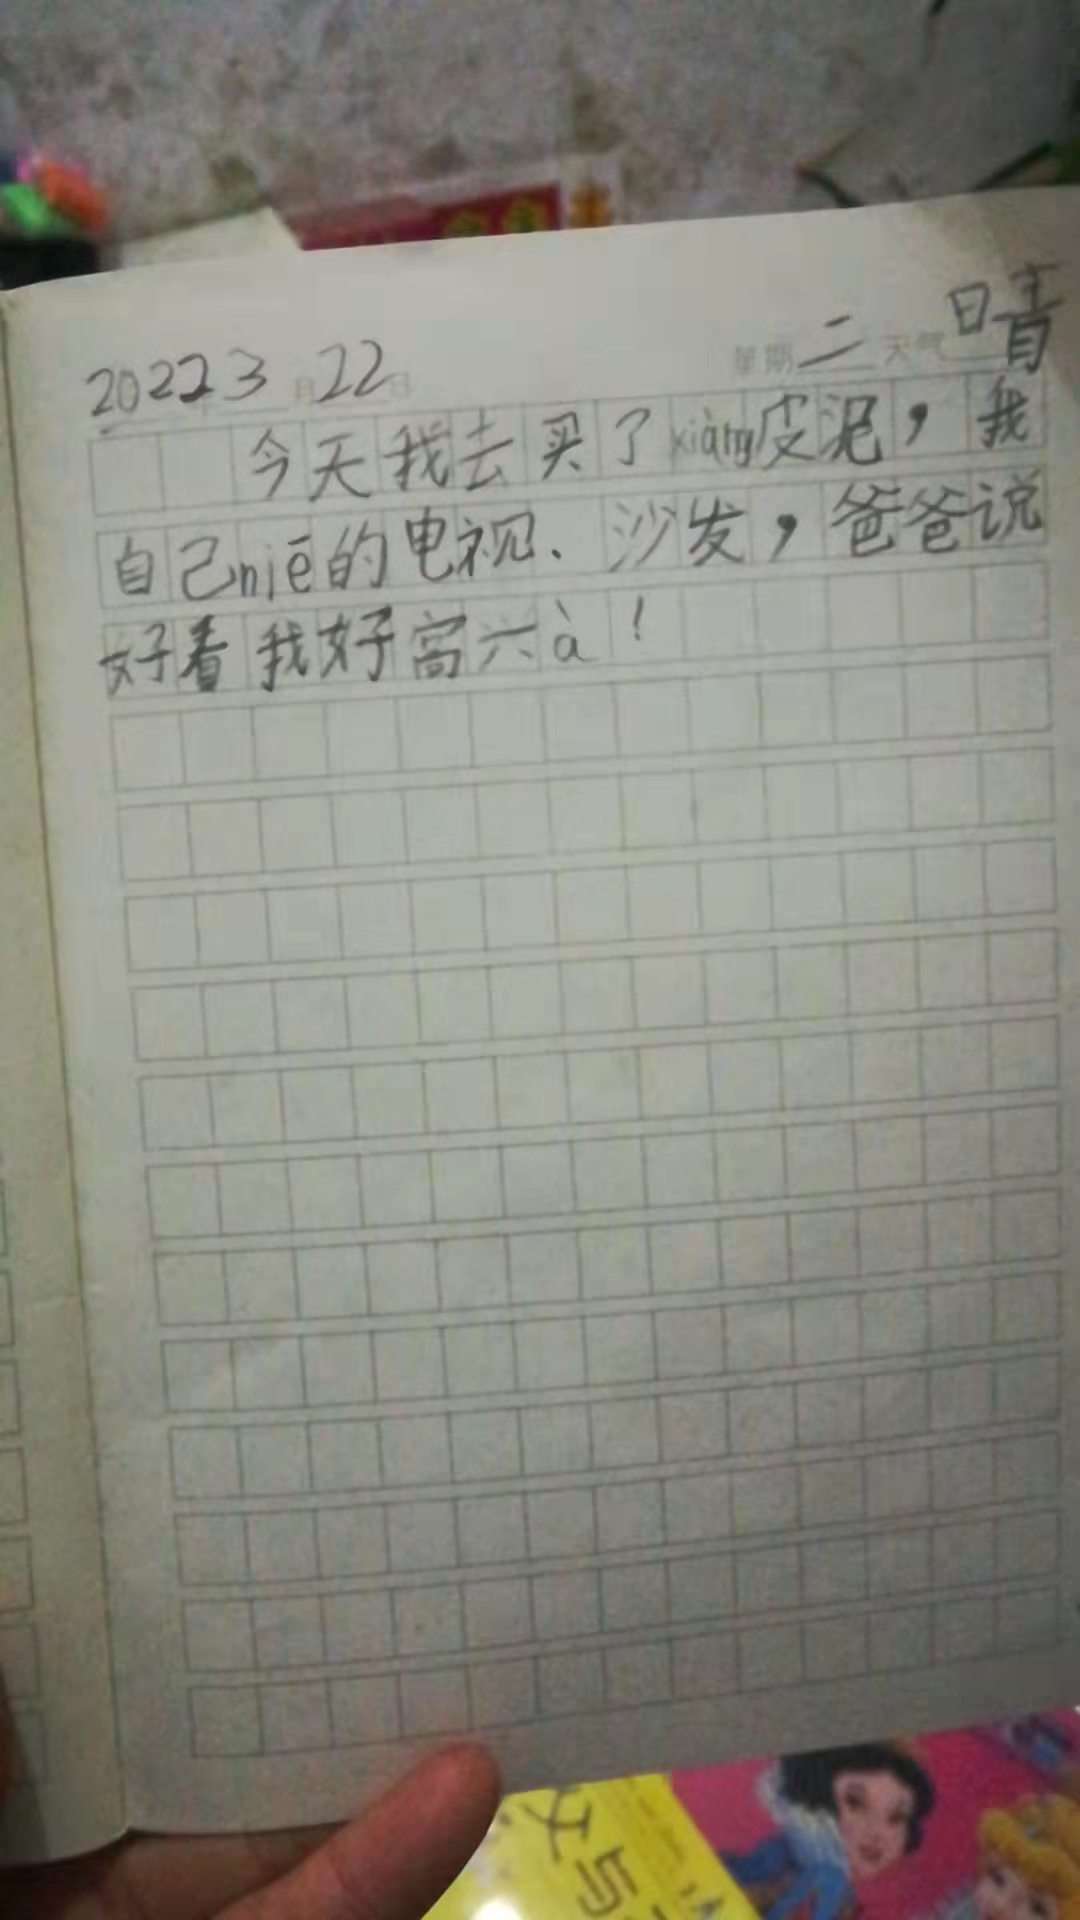 2022 3 月 22 日 星期 二 天气 晴
今天我去买了xiàng皮泥，我
自己niē的电视、沙发，爸爸说
好看我好高六à！
与